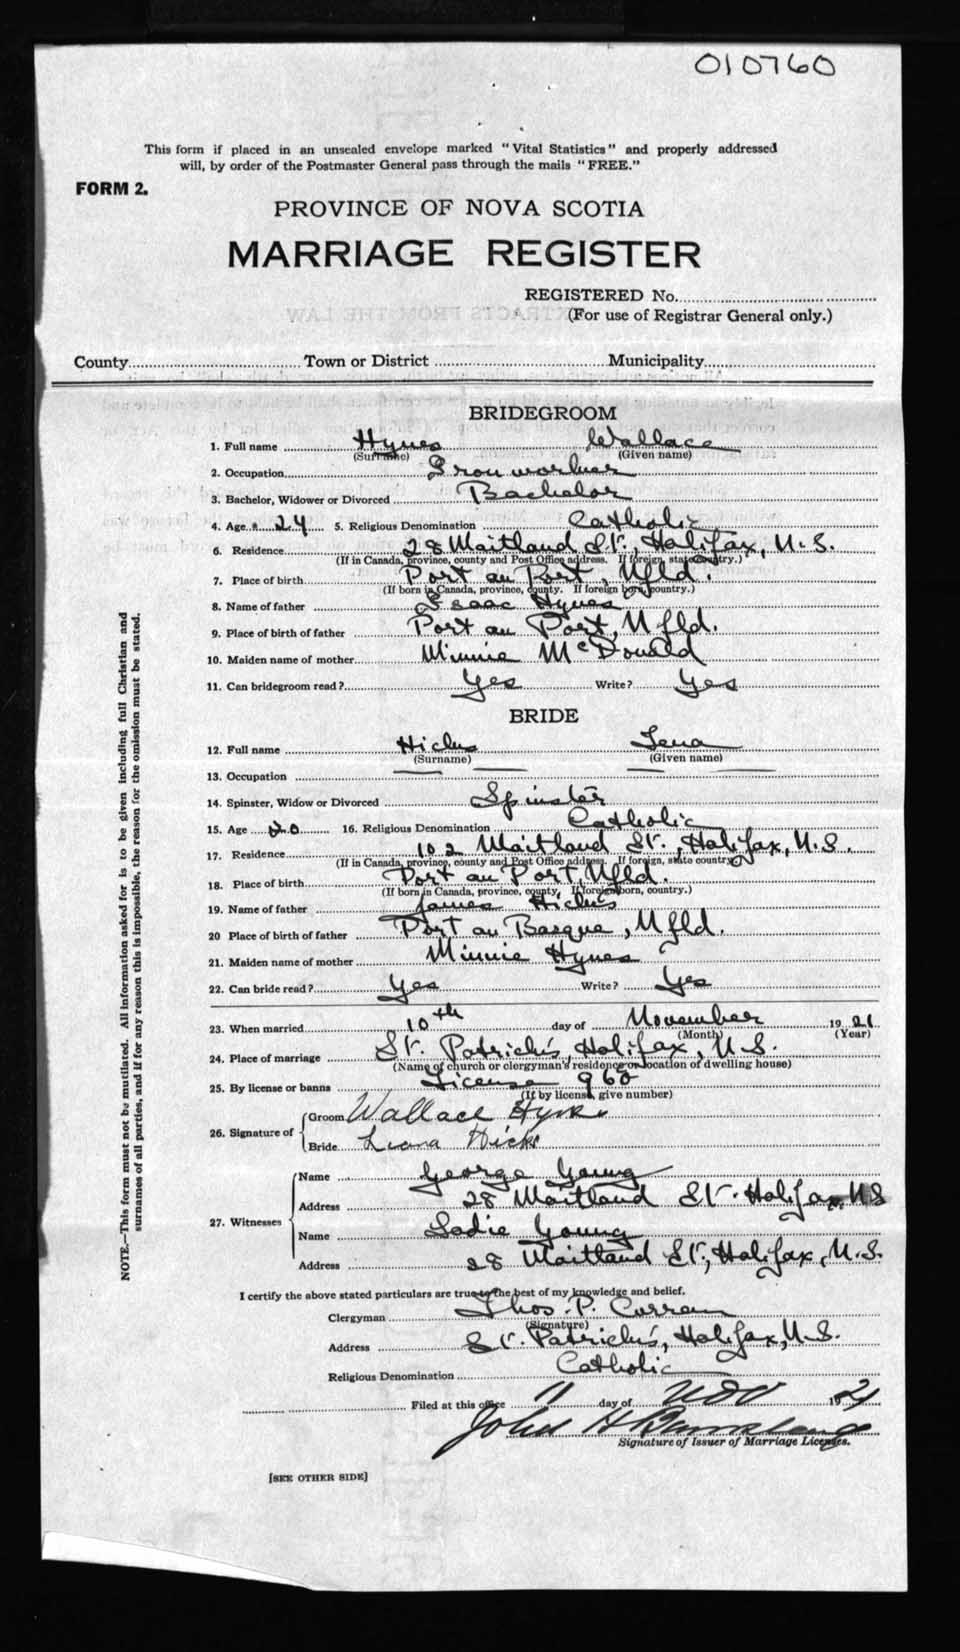 010760
This form if placed in an unsealed envelope marked "Vital Statistics" and properly addressed
will, by order of the Postmaster General pass through the mails "FREE."
FORM 2.
PROVINCE OF NOVA SCOTIA
MARRIAGE REGISTER
REGISTERED No.
(For use of Registrar General only.)
County Town or District Municipality
BRIDEGROOM
1. Full name Hynes Wallace
(Surname) (Given name)
2. Occupation Iron worker
3. Bachelor, Widower or Divorced Bachelor
4. Age 24 5. Religious Denomination Catholic
6. Residence 28 Maitland St., Halifax, N.S.
(If in Canada, province, county and Post Office address. If foreign, state country.)
7. Place of birth Port au Port, Nfld.
(If born in Canada, province, county. If foreign born, country.)
8. Name of father Isaac Hynes
9. Place of birth of father Port au Port, Nfld.
10. Maiden name of mother Minnie McDonald
11. Can bridegroom read? Yes Write? Yes
BRIDE
12. Full name Hicks Lena
(Surname) (Given name)
13. Occupation
14. Spinster, Widow or Divorced Spinster
15. Age 20 16. Religious Denomination Catholic
17. Residence 102 Maitland St., Halifax, N.S.
(If in Canada, province, county and Post Office address. If foreign, state country.)
18. Place of birth Port au Port, Nfld.
(If born in Canada, province, county, If foreign born, country.)
19. Name of father James Hicks
20 Place of birth of father Port au Basque, Nfld.
21. Maiden name of mother Minnie Hynes
22. Can bride read? Yes Write? Yes
23. When married 10th day of November 1921
(Month) (Year)
24. Place of marriage St. Patrick's, Halifax, N.S.
(Name of church or clergyman's residence or location of dwelling house)
25. By license or banns License 960
(If by license, give number)
26. Signature of Groom Wallace Hynes
Bride Liona Hicks
27. Witnesses Name George Young
Address 28 Maitland St. Halifax, N.S
Name Sadie Young
Address 28 Maitland St., Halifax, N.S.
I certify the above stated particulars are true to the best of my knowledge and belief.
Clergyman Thos. P. Curran
(Signature)
Address St. Patrick's, Halifax, N.S.
Religious Denomination Catholic
Filed at this office 11 day of Nov 1921
John H
Signature of Issuer of Marriage Licenses.
[SEE OTHER SIDE]
NOTE.—This form must not be mutilated. All information asked for is to be given including full Christian and
surnames of all parties, and if for any reason this is impossible, the reason for the omission must be stated.